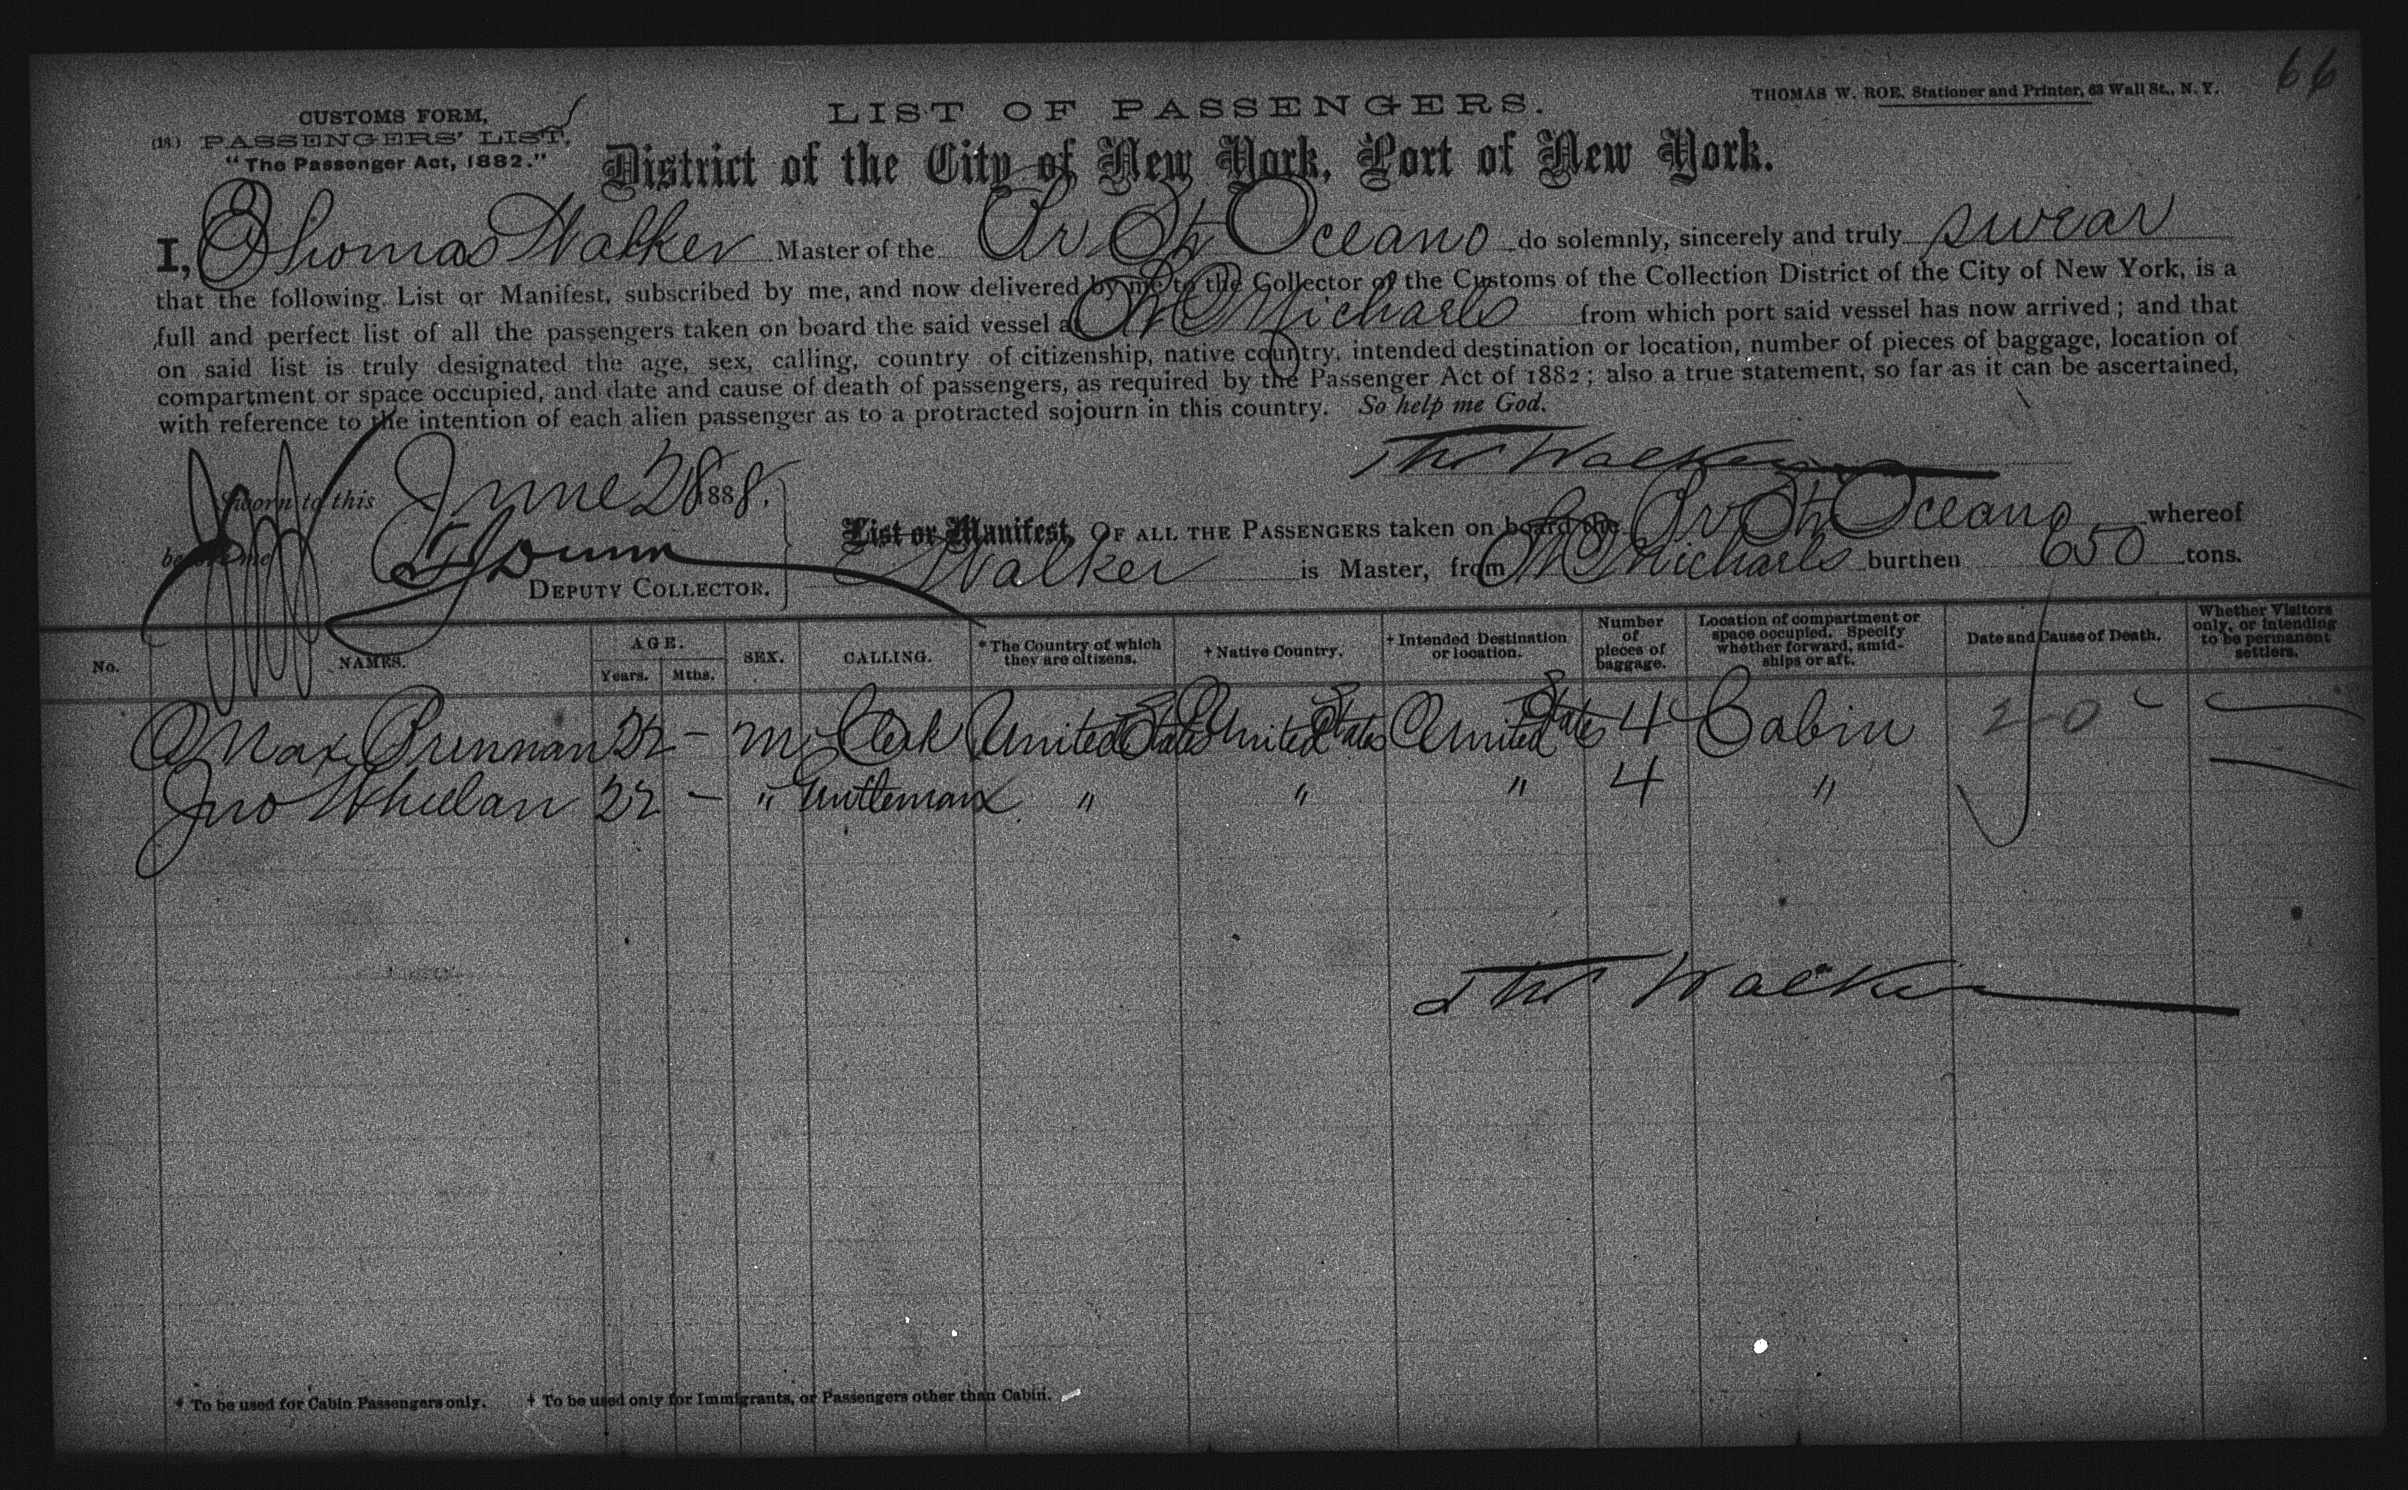 66
THOMAS W. ROE, Stationer and Printer, 63 Wall St., N. Y.
CUSTOMS FORM,
(18) PASSENGERS' LIST,
"The Passenger Act, 1882."
LIST OF PASSENGERS.
District of the City of New York, Port of New York.
I, Thomas Walker Master of the Br Str Oceano do solemnly, sincerely and truly swear
that the following List or Manifest, subscribed by me, and now delivered by me to the Collector of the Customs of the Collection District of the City of New York, is a
full and perfect list of all the passengers taken on board the said vessel at St Michaels from which port said vessel has now arrived; and that
on said list is truly designated the age, sex, calling, country of citizenship, native country, intended destination or location, number of pieces of baggage, location of
compartment or space occupied, and date and cause of death of passengers, as required by the Passenger Act of 1882; also a true statement, so far as it can be ascertained,
with reference to the intention of each alien passenger as to a protracted sojourn in this country. So help me God.
Thos Walker
Sworn to this June 28 1888.
before me Dunn
DEPUTY COLLECTOR.
List or Manifest, OF ALL THE PASSENGERS taken on board the Br Str Oceano whereof
Walker is Master, from St Michaels burthen 650 tons.
No. NAMES. AGE. Years. Mths. SEX. CALLING. * The Country of which they are citizens. † Native Country. † Intended Destination or location. Number of pieces of baggage. Location of compartment or space occupied. Specify whether forward, amidships or aft. Date and Cause of Death. Whether Visitors only, or intending to be permanent settlers.
Max Brennan 22 - m Clerk United States United States United States 4 Cabin 2-0
Jno Wheelan 22 - " Gentleman " " " 4 "
Thos Walker
* To be used for Cabin Passengers only. † To be used only for Immigrants, or Passengers other than Cabin.